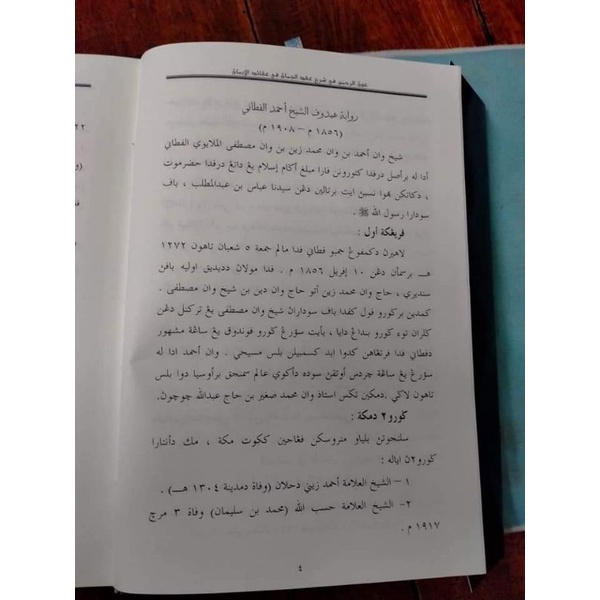 عون الرحمن في شرح عقد الجمان في عقائد الإيمان
رواية هيدوف الشيخ أحمد الفطاني
(١٨٥٦ م – ١٩٠٨ م)
شيخ وان أحمد بن وان محمد زين بن وان مصطفى الملايوي الفطاني
أدا له برأصل درفدا كتورونن فارا مبلغ أݢام إسلام يڠ داتڠ درفدا حضرموت
، دكاتكن بهوا نسبن ايت برتالين دڠن سيدنا عباس بن عبدالمطلب ، باف
سودارا رسول الله ﷺ .
فريڠكة أول :
لاهيرن دكمفوڠ جمبو فطاني فدا مالم جمعة ٥ شعبان تاهون ١٢٧٢
هـ برسمأن دڠن ١٠ إفريل ١٨٥٦ م . فدا مولان دديديق اوليه بافن
سنديري ، حاج وان محمد زين أتو حاج وان دين بن شيخ وان مصطفى .
كمدين بركورو فول كفدا باف سوداران شيخ وان مصطفى يڠ تركنل دڠن
ݢلران توء كورو بنداڠ دايا ، يأيت سؤرڠ كورو فوندوق يڠ ساڠة مشهور
دفطاني فدا فرتڠاهن كدوا ابد كسمبيلن بلس مسيحي . وان أحمد ادا له
سؤرڠ يڠ ساڠة چردس أوتقن سوده دأكوي عالم سمنجق برأوسيا دوا بلس
تاهون لاݢي .دمكين تكس استاذ وان محمد صغير بن حاج عبدالله چوچون.
كورو٢ دمكة :
سلنجوتن بلياو منروسكن فڠاجين ككوت مكة ، مك دأنتارا
كورو٢ن اياله :
١ – الشيخ العلامة أحمد زيني دحلان (وفاة دمدينة ١٣٠٤ هـ) .
٢- الشيخ العلامة حسب الله (محمد بن سليمان) وفاة ٣ مرچ
١٩١٧ م .
٤